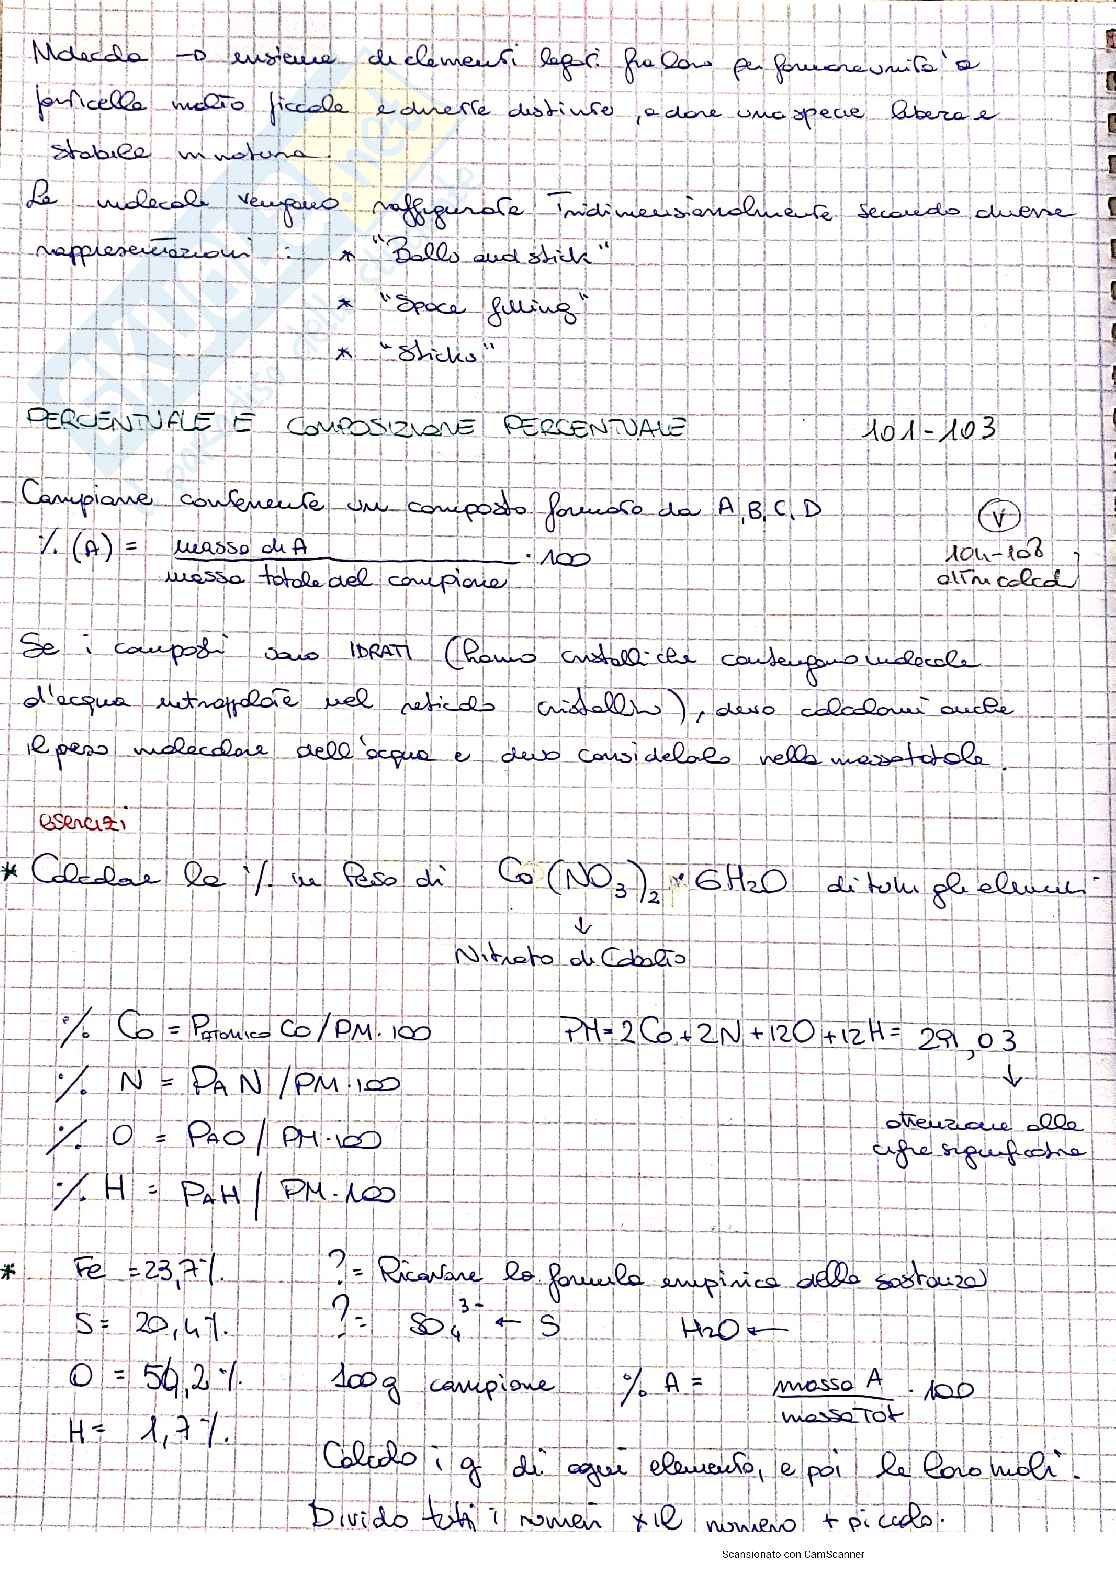 Molecola → insieme di elementi legati fra loro per formare unità o
particelle molto piccole e diverse distinte, e dare una specie libera e
stabile in natura.
Le molecole vengono raffigurate Tridimensionalmente secondo diverse
rappresentazioni : * "Balls and stick"
* "Space filling"
* "Sticks"
PERCENTUALE E COMPOSIZIONE PERCENTUALE 101-103
Campione contenente un composto formato da A, B, C, D
V
% (A) = massa di A / massa totale del campione · 100
104-108
altri calcoli
Se i composti sono IDRATI (hanno cristalli che contengono molecole
d'acqua intrappolate nel reticolo cristallino), devo calcolarmi anche
il peso molecolare dell'acqua e devo considerarlo nella massa totale.
esercizi
* Calcolare la % in Peso di Co(NO3)2 · 6H2O di tutti gli elementi
↓
Nitrato di Cobalto
% Co = PATOMICO CO/PM·100 PM=2Co+2N+12O+12H= 291,03
↓
% N = PA N /PM·100
attenzione alle
% O = PAO/ PM·100
cifre significative
% H = PAH/ PM·100
* Fe = 23,7% ?= Ricavare la formula empirica della sostanza
S= 20,4% ?= SO4 3- ← S H2O ←
O = 54,2% 100g campione % A = massa A / massa Tot · 100
H= 1,7%.
Calcolo i g di ogni elemento, e poi le loro moli.
Divido tutti i numeri x il numero + piccolo.
Scansionato con CamScanner